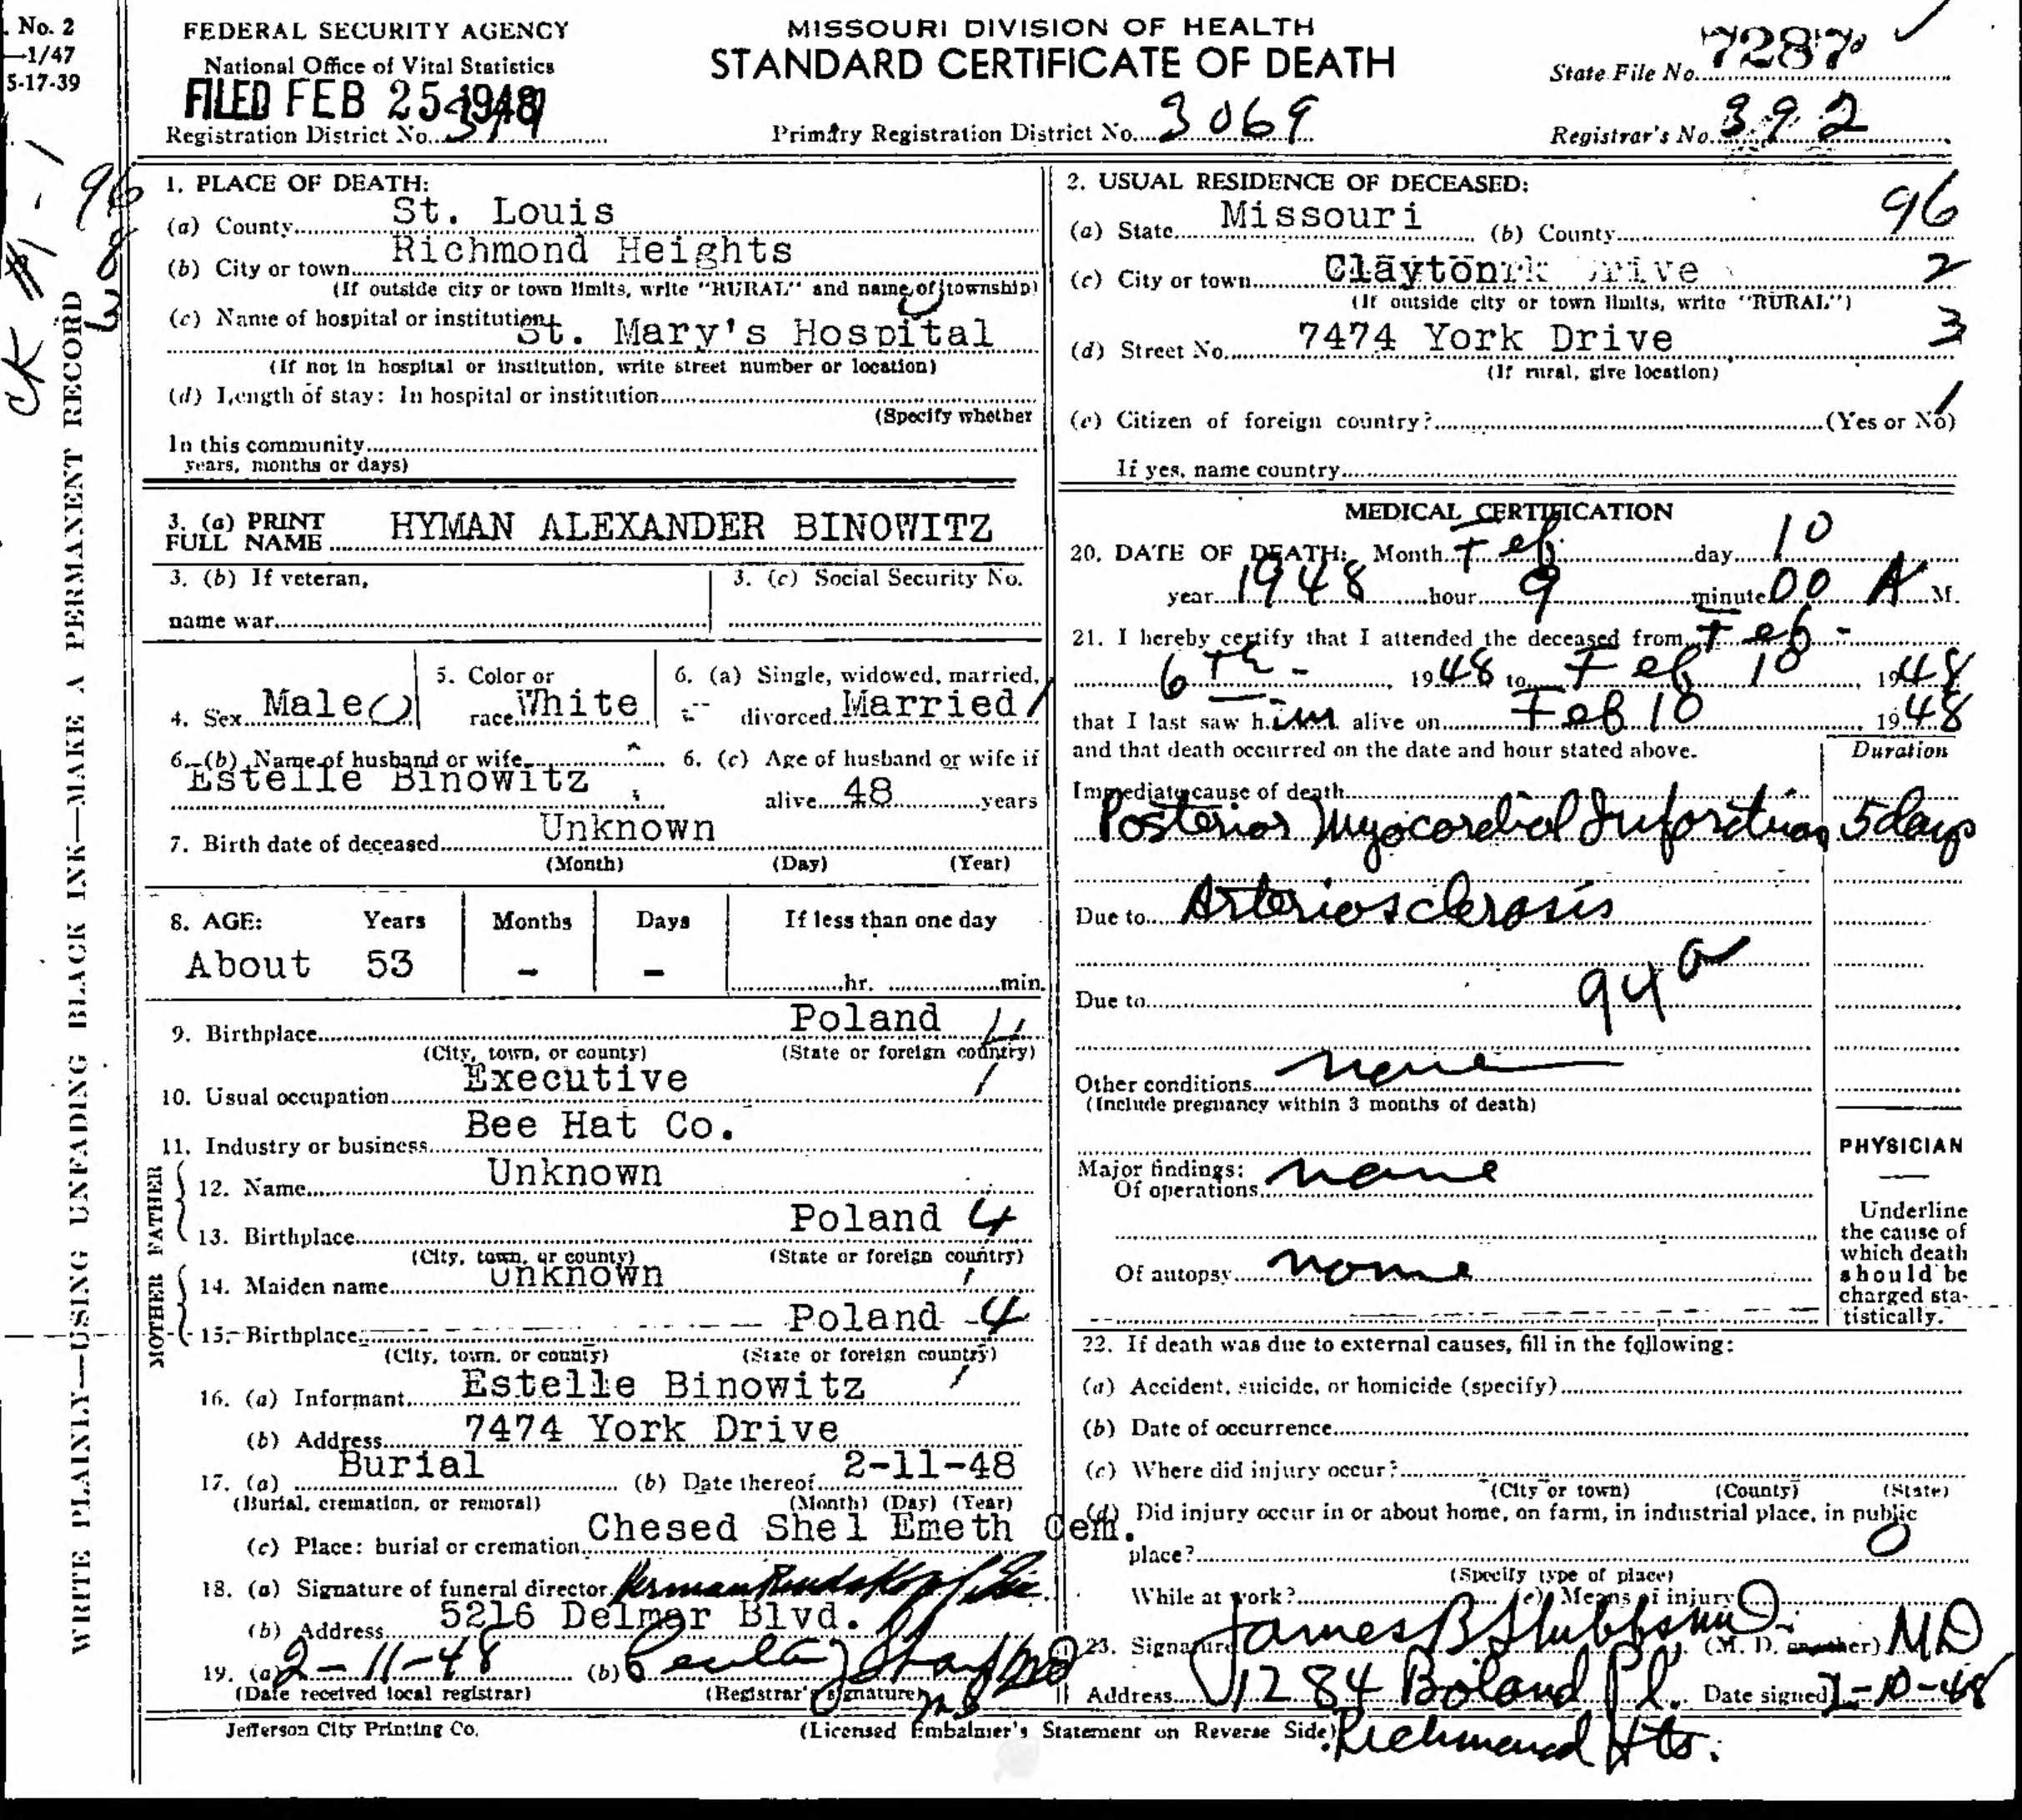 . No. 2
—1/47
5-17-39
FEDERAL SECURITY AGENCY
National Office of Vital Statistics
FILED FEB 25 1948
Registration District No.
MISSOURI DIVISION OF HEALTH
STANDARD CERTIFICATE OF DEATH
Primary Registration District No. 3069
State File No. 7287
Registrar's No. 392
CK #1-1
96
WRITE PLAINLY—USING UNFADING BLACK INK—MAKE A PERMANENT RECORD
1. PLACE OF DEATH:
(a) County St. Louis
(b) City or town Richmond Heights
(If outside city or town limits, write "RURAL" and name of township)
(c) Name of hospital or institution
St. Mary's Hospital
(If not in hospital or institution, write street number or location)
(d) Length of stay: In hospital or institution
(Specify whether
In this community
years, months or days)
2. USUAL RESIDENCE OF DECEASED:
96
(a) State Missouri (b) County
(c) City or town Clayton 2
(If outside city or town limits, write "RURAL")
(d) Street No. 7474 York Drive 3
(If rural, give location)
(e) Citizen of foreign country? (Yes or No) 1
If yes, name country
3. (a) PRINT
FULL NAME HYMAN ALEXANDER BINOWITZ
3. (b) If veteran,
name war
3. (c) Social Security No.
4. Sex Male 0
5. Color or
race White
6. (a) Single, widowed, married,
divorced Married 1
6. (b) Name of husband or wife
Estelle Binowitz
6. (c) Age of husband or wife if
alive 48 years
7. Birth date of deceased Unknown
(Month) (Day) (Year)
8. AGE: Years Months Days If less than one day
About 53 - - hr. min.
9. Birthplace Poland 4
(City, town, or county) (State or foreign country)
10. Usual occupation Executive 1
11. Industry or business Bee Hat Co.
FATHER
12. Name Unknown
13. Birthplace Poland 4
(City, town, or county) (State or foreign country)
MOTHER
14. Maiden name Unknown 1
15. Birthplace Poland 4
(City, town, or county) (State or foreign country)
16. (a) Informant Estelle Binowitz 1
(b) Address 7474 York Drive
17. (a) Burial (b) Date thereof 2-11-48
(Burial, cremation, or removal) (Month) (Day) (Year)
(c) Place: burial or cremation Chesed Shel Emeth Cem.
18. (a) Signature of funeral director Herman Rindskopf
(b) Address 5216 Delmar Blvd.
19. (a) 2-11-48 (b)
(Date received local registrar) (Registrar's signature)
MEDICAL CERTIFICATION
20. DATE OF DEATH: Month Feb day 10
year 1948 hour 9 minute 00 A M.
21. I hereby certify that I attended the deceased from Feb -
6th - , 1948 to Feb 10 , 1948
that I last saw him alive on Feb 10 , 1948
and that death occurred on the date and hour stated above.
Duration
Immediate cause of death
Posterior Myocardial Infarction 5 days
Due to Arteriosclerosis
94a
Due to
Other conditions none
(Include pregnancy within 3 months of death)
Major findings:
Of operations none
Of autopsy none
PHYSICIAN
Underline
the cause of
which death
should be
charged sta-
tistically.
22. If death was due to external causes, fill in the following:
(a) Accident, suicide, or homicide (specify)
(b) Date of occurrence
(c) Where did injury occur?
(City or town) (County) (State)
(d) Did injury occur in or about home, on farm, in industrial place, in public
place? 0
(Specify type of place)
While at work? (e) Means of injury
23. Signature James B Stubbs MD (M. D. or other) MD
Address 1284 Boland Pl. Date signed 2-10-48
Richmond Hts.
Jefferson City Printing Co.
(Licensed Embalmer's Statement on Reverse Side)